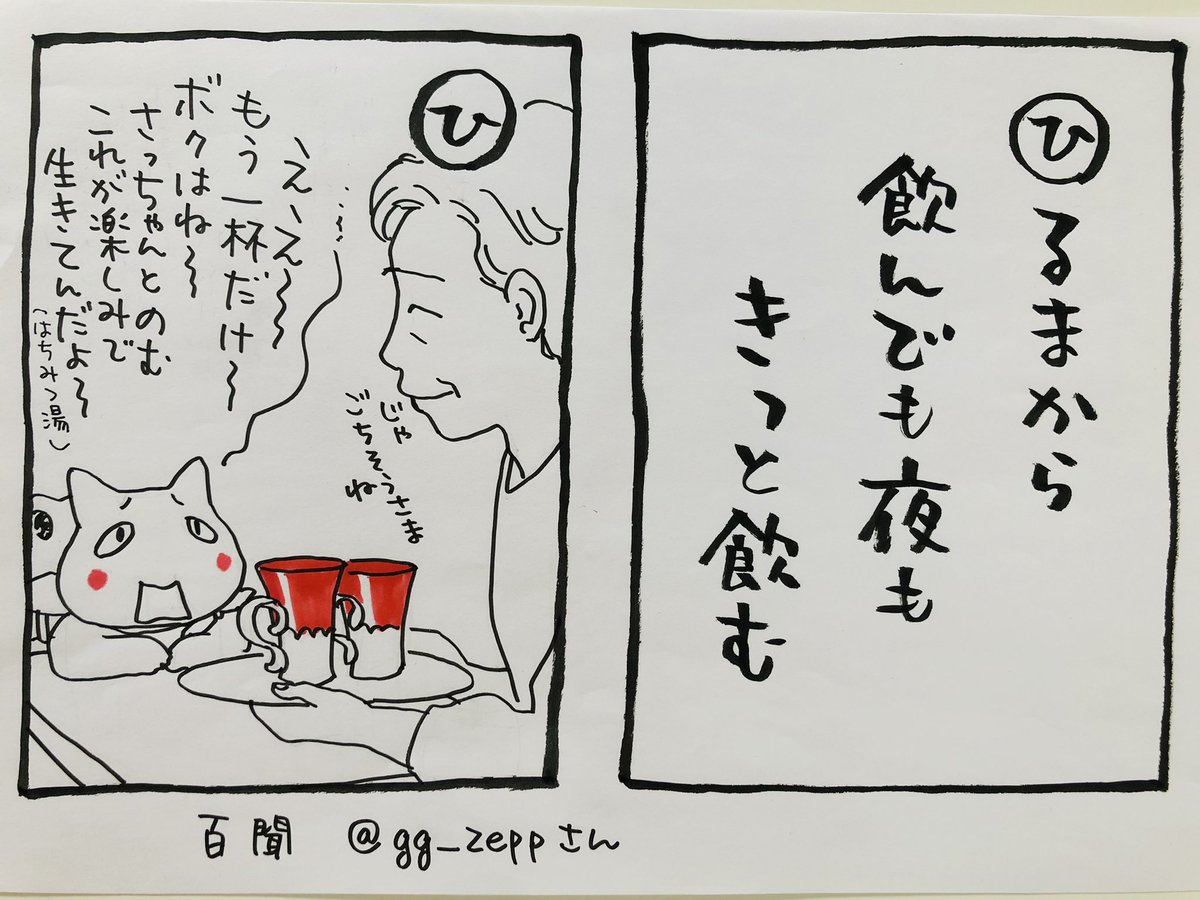 ひるまから
飲んでも夜も
きっと飲む
ひ
、え、え〜〜
もう一杯だけ〜
ボクはね〜
さっちゃんとのむ
これが楽しみで
生きてんだよ〜
(はちみつ湯)
じゃ
ごちそうさま
ね
百聞 @gg_zeppさん